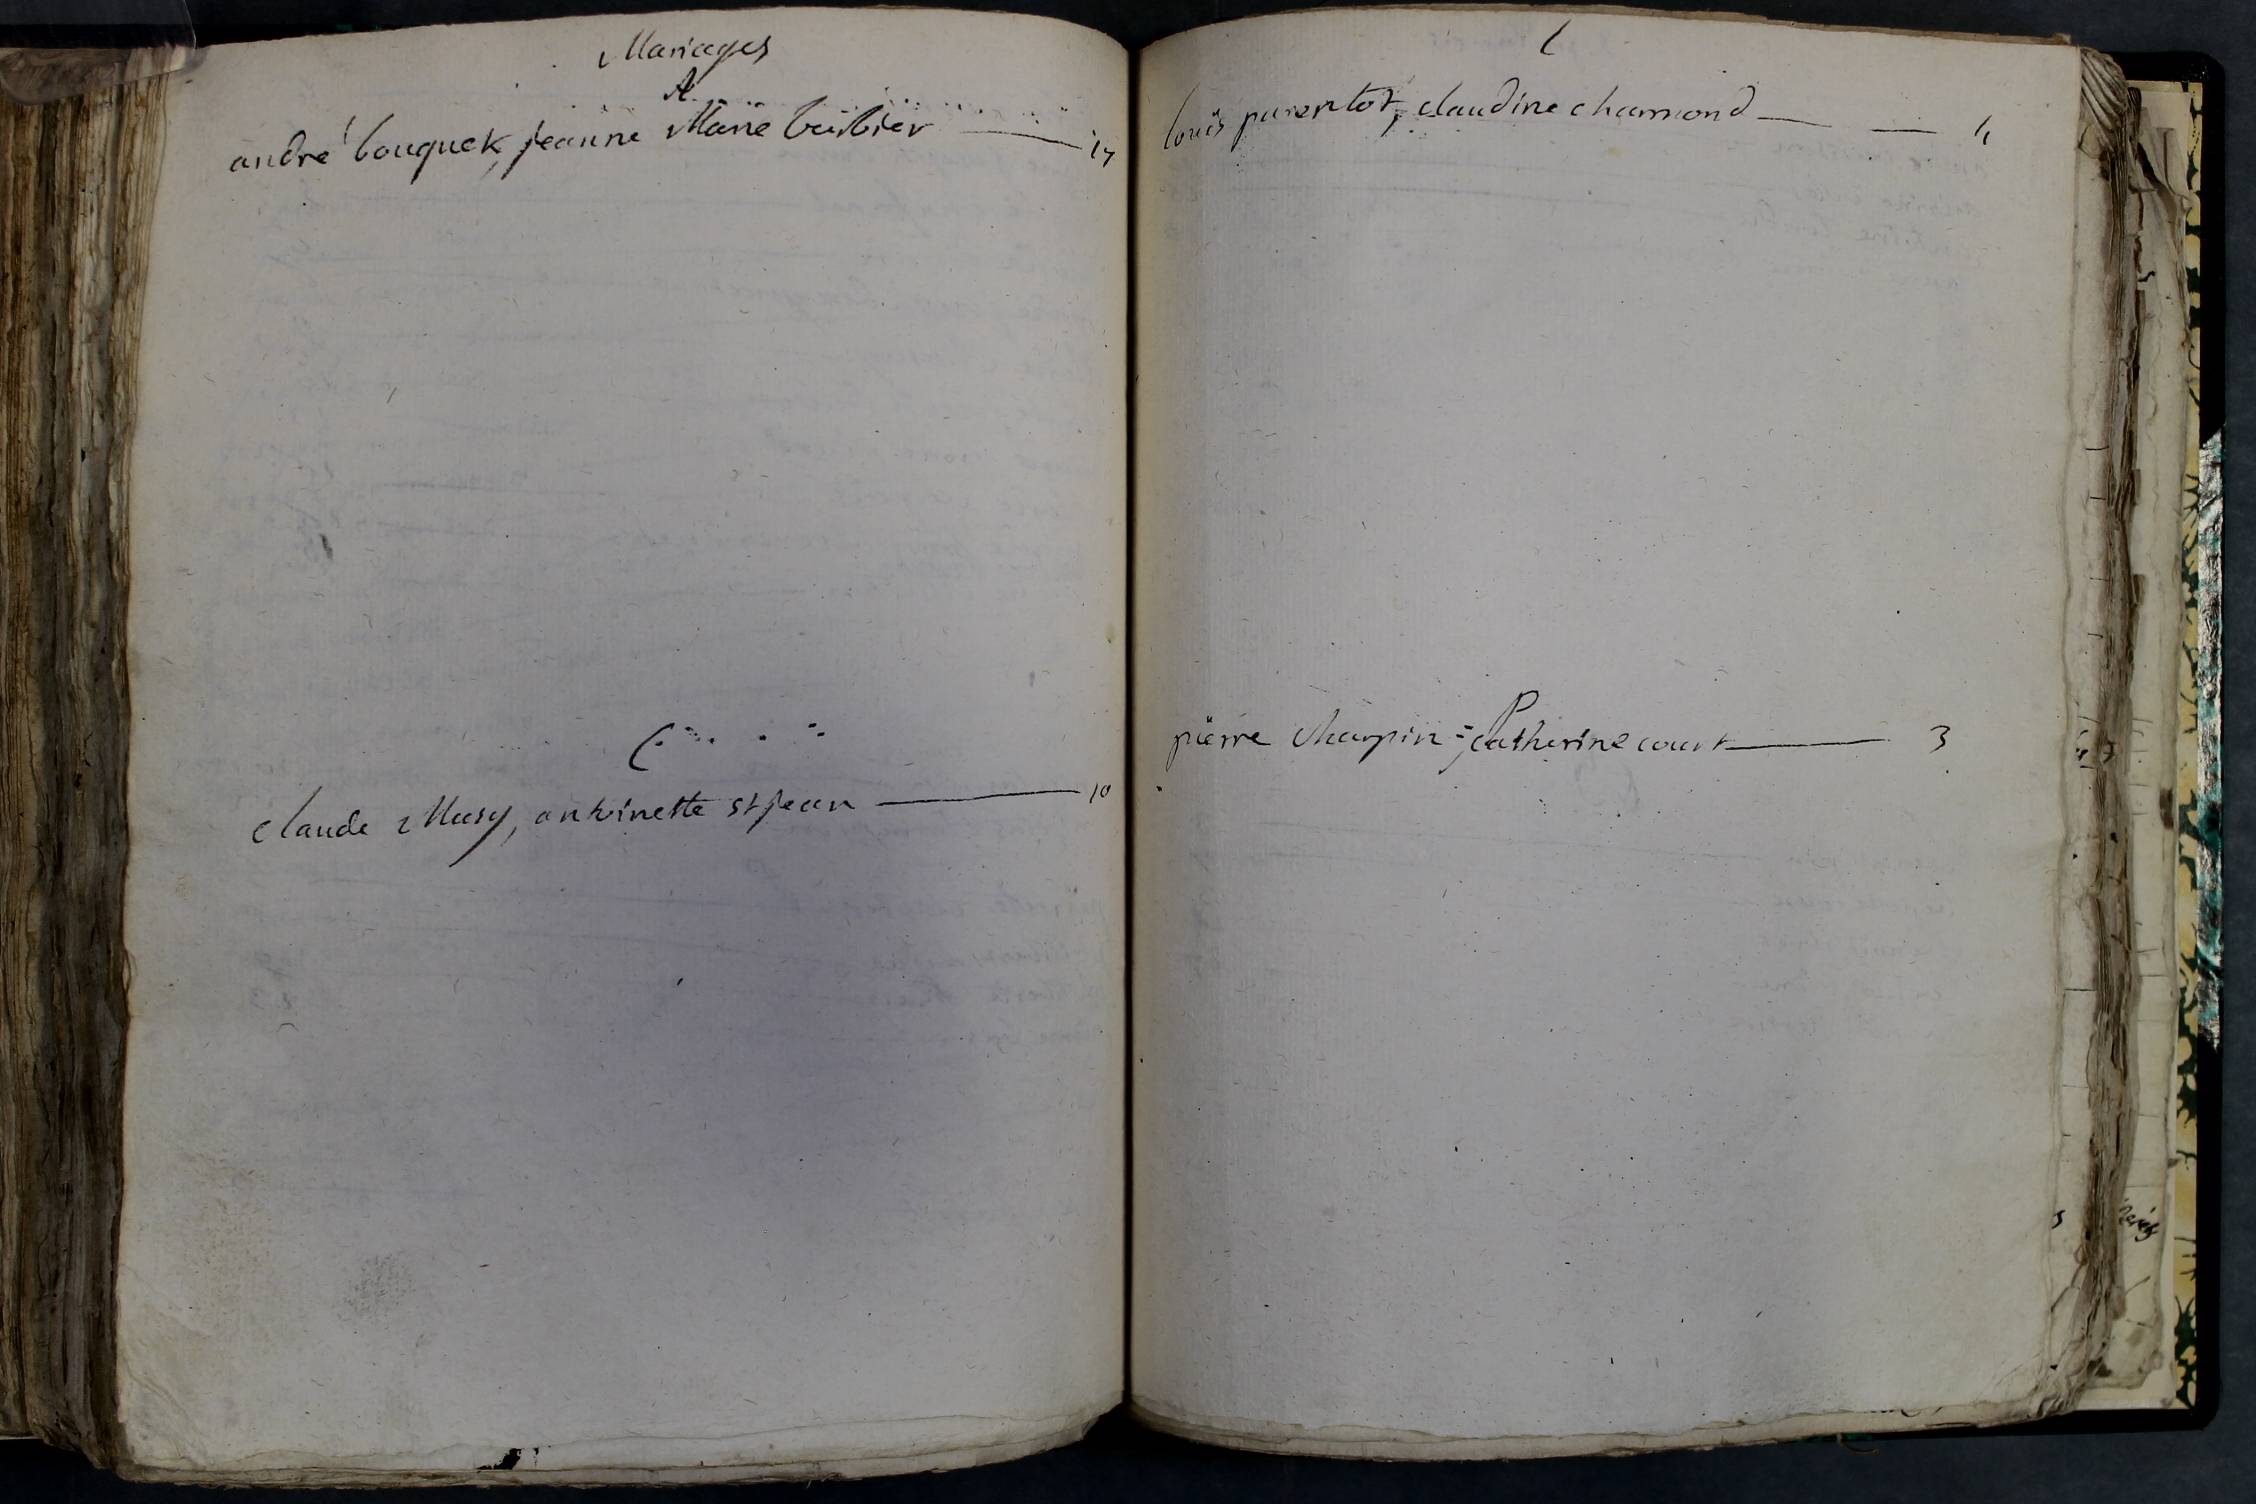 Mariages
A
andré bouquet, jeanne Marie barbier 17
C
claude Musy, antoinette st jean 10
L
louis parentot, claudine chamond 4
P
pierre charpin, catherine court 3